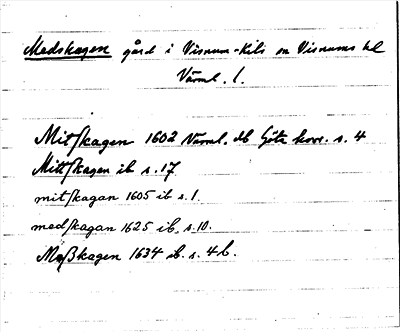 Medskagen gård i Visnum-Kils sn Visnums hd
Värml. l.
Mitſkagen 1602 Värml. db Göta hovr. s. 4
Mittſkagen ib s. 17
mitſkagan 1605 ib s. 1.
medſkagan 1625 ib. s. 10.
Meßkagen 1634 ib. s. 4b.